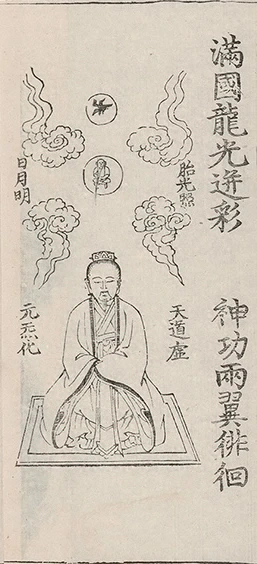 滿國龍光迸彩
神功兩翼徘徊
胎光照
日月明
天道虛
元炁化